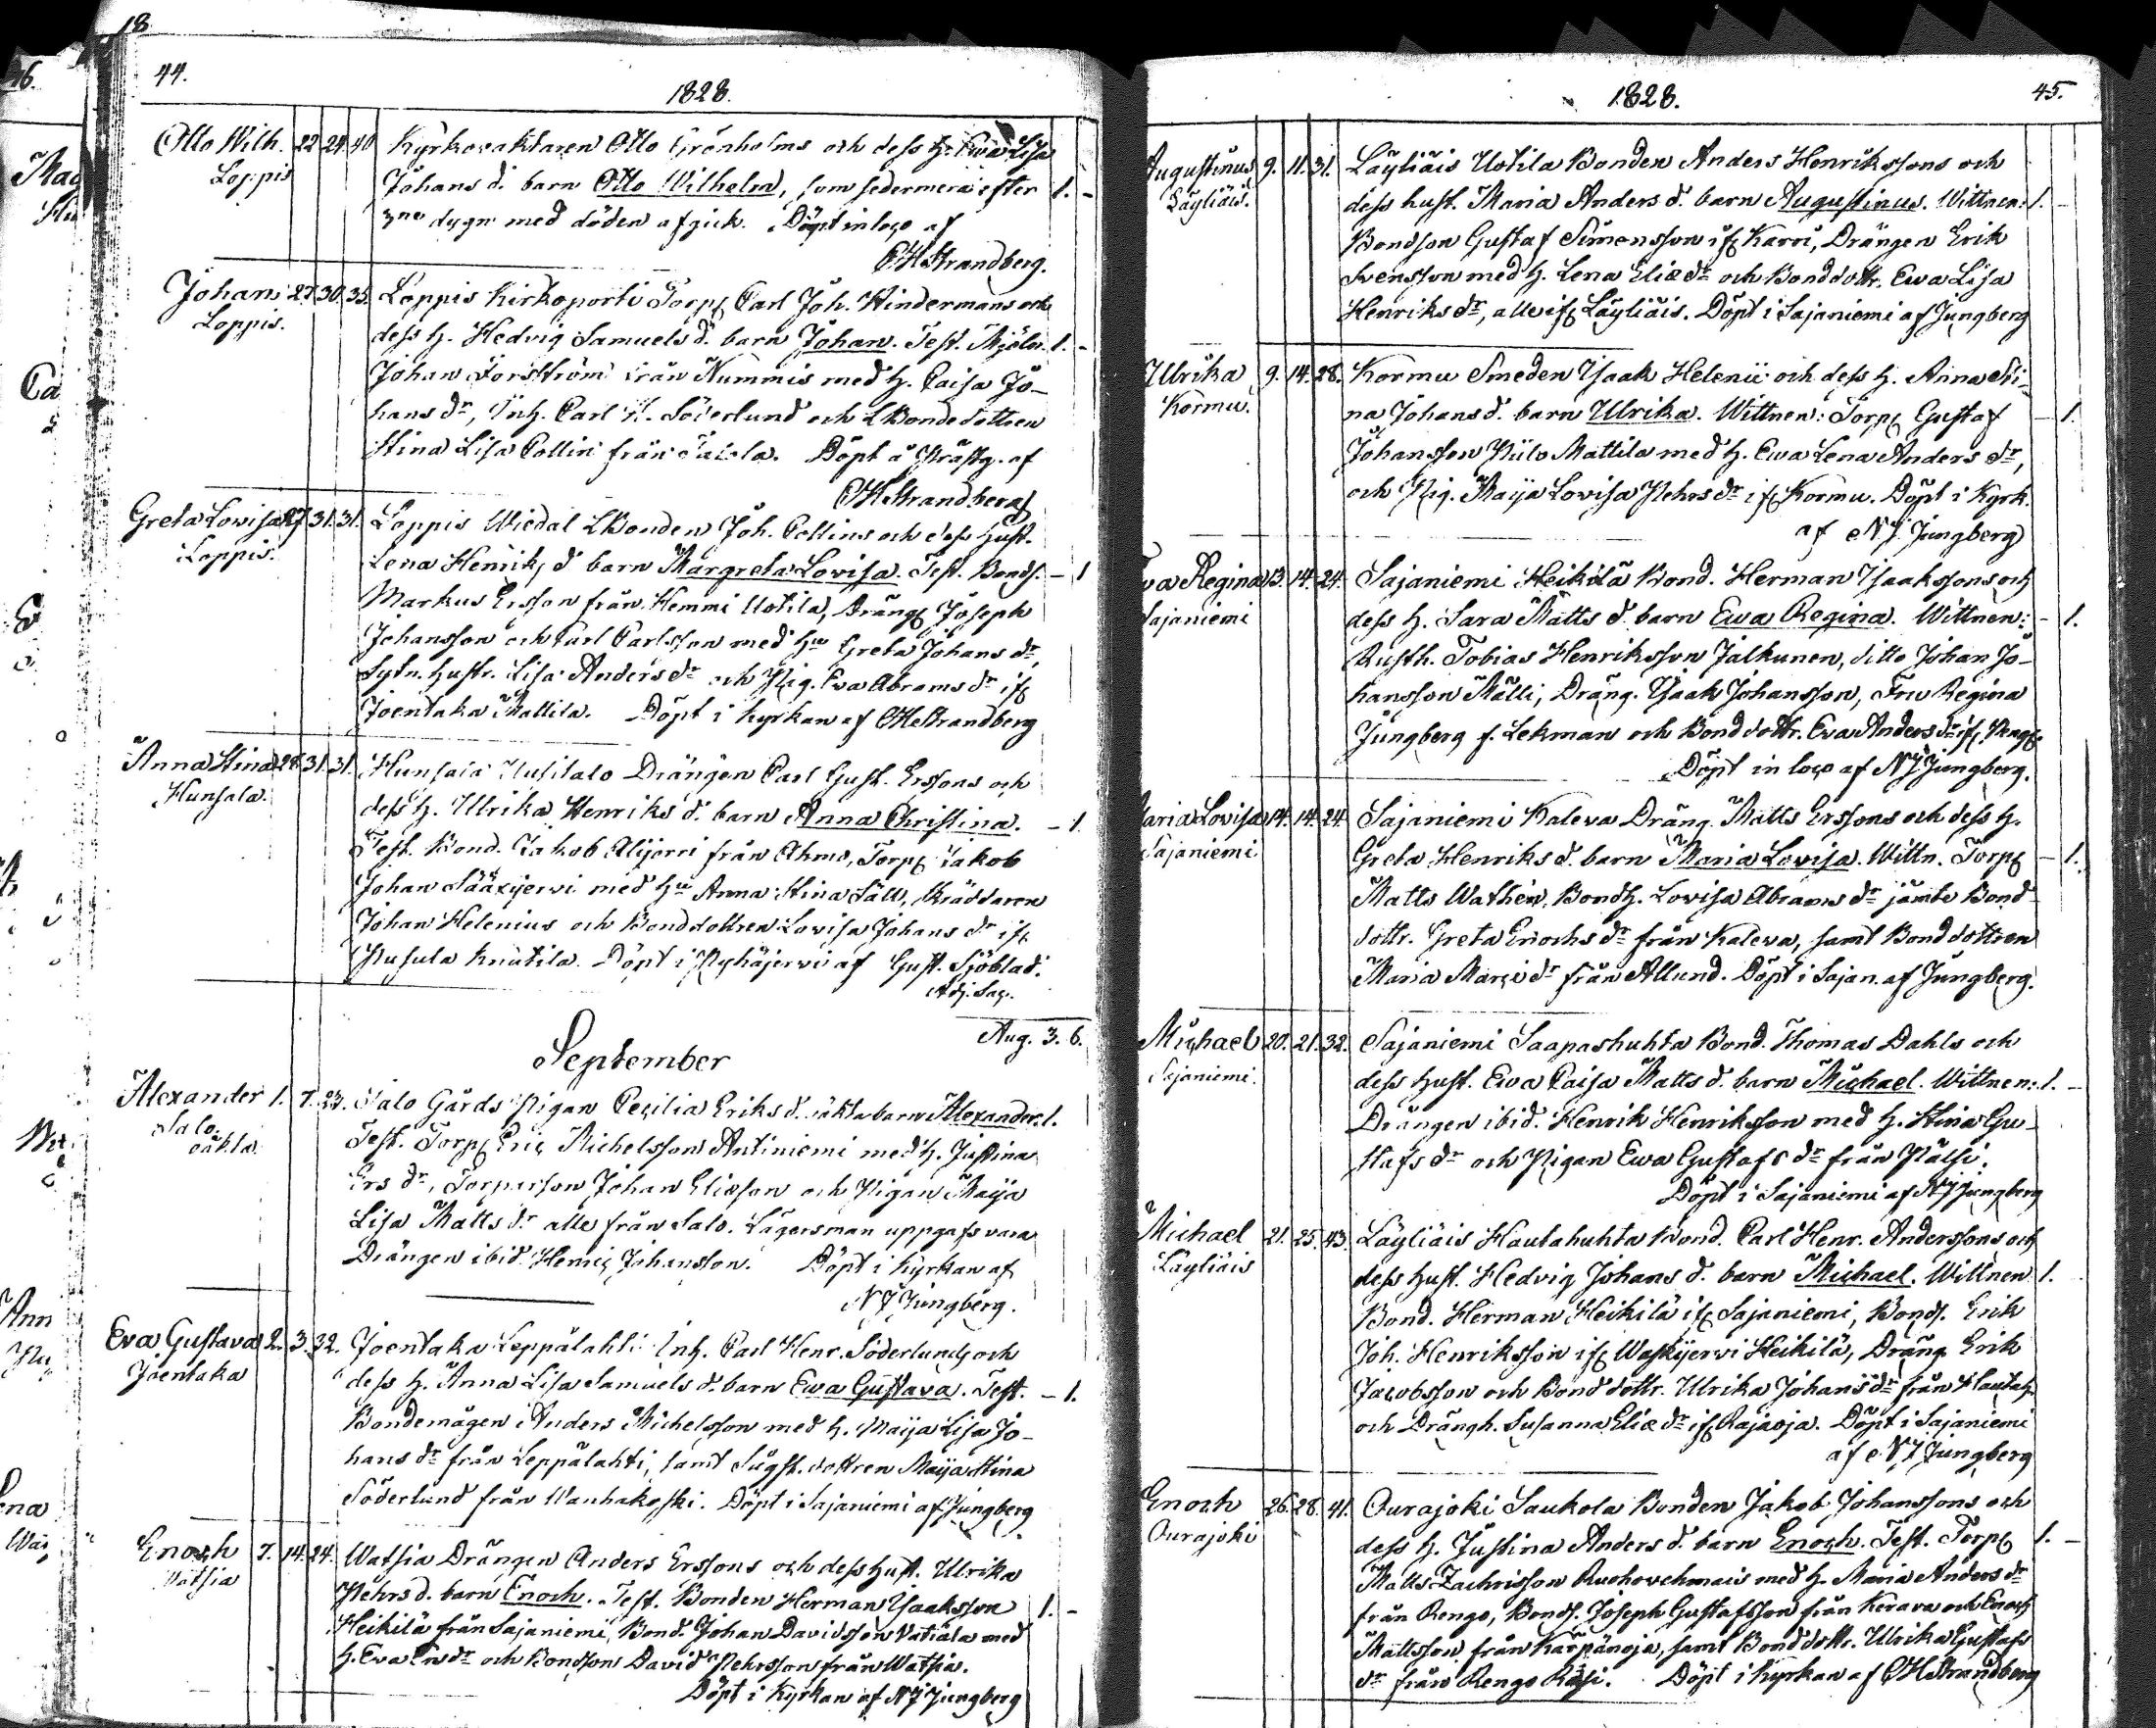 18
44.
1828.
Otto Wilh. 22 24 40 Kyrkovaktaren Otto Grönholms och dess h. Ewa Lisa
Loppis Johans d. barn Otto Wilhelm, som sedermera efter 1. -
3ne dygn med döden afgick. Döpt in loco af
CHStrandberg.
Johan 27. 30. 35. Loppis Kirkoporti Torp. Carl Joh. Hindermans och
Loppis. dess h. Hedvig Samuels d. barn Johan. Test. Mjöln. 1. -
Johan Forsström från Nummis med h. Caisa Jo-
hans dr, Inh. Carl H. Söderlund och LBondedottren
Stina Lisa Collin från Taipla. Döpt å Prästg. af
CHStrandberg
Greta Lovisa 27. 31. 31. Loppis Wiedal LBonden Joh. Collins och dess Hust.
Loppis. Lena Henriks d barn Margreta Lovisa. Test. Bonds. - 1
Markus Ersson från Hemmi Uotila, Dräng Joseph
Johansson och Carl Carlsson med Hu Greta Johans dr,
Sytn. Hustr. Lisa Anders dr och Pig. Eva Abrams dr if.
Joentaka Mattila. Döpt i Kyrkan af CHStrandberg
Anna Stina 28. 31. 31. Hunsala Uusitalo Drängen Carl Gust. Erssons och
Hunsala. dess h. Ulrika Henriks d. barn Anna Christina. - 1.
Test. Bond. Jakob Alijerri från Ahmo, Torp. Jakob
Johan Sääxijerwi med Hu Anna Stina Säll, Skräddaren
Johan Helenius och Bonddottren Lovisa Johans dr if.
Pusula Knutila. Döpt i Pyhäjerwi af Gust. Sjöblad.
Adj. Sac.
Aug. 3. 6.
September
Alexander 1. 7. 23. Salo Gårds Pigan Cecilia Eriks d. oäkta barn Alexander. 1.
Salo. Test. Torp. Eric Michelsson Antiniemi med h. Justina
oäkta. Ers dr, Torparson Johan Eliasson och Pigan Maija
Lisa Matts dr alle från Salo. Lägersman uppgafs vara
Drängen ibid. Henric Johansson. Döpt i Kyrkan af
NJ Jungberg.
Eva Gustava 2. 3. 32. Joentaka Leppälahti Inh. Carl Henr. Söderlunds och
Joentaka dess h. Anna Lisa Samuels d. barn Ewa Gustava. Test. - 1.
Bondemågen Anders Michelsson med h. Maija Lisa Jo-
hans dr från Leppälahti, samt Sugst. dottren Maija Stina
Söderlund från Wanhakoski. Döpt i Sajaniemi af Jungberg
Enoch 7. 14. 24. Watsia Drängen Anders Erssons och dess Hust. Ulrika
Watsia Pehrs d. barn Enoch. Test. Bonden Herman Isaaksson 1. -
Heikilä från Sajaniemi, Bond. Johan Davidsson Vatiala med
h. Eva Ers dr och Bondson David Pehrsson från Watsia.
Döpt i Kyrkan af NJ Jungberg
1828.
45.
Augustinus 9. 11. 31. Läyliäis Uotila Bonden Anders Henrikssons och
Läyliäis. dess hust. Maria Anders d. barn Augustinus. Wittnen: 1. -
Bondson Gustaf Simonsson if. Karri, Drängen Erik
Svensson med h. Lena Eliæ dr och Bonddottr. Ewa Lisa
Henriks dr, alle if. Läyliäis. Döpt i Sajaniemi af Jungberg
Ulrika 9. 14. 28. Kormu Smeden Isaak Helenii och dess h. Anna Sti-
Kormu. na Johans d. barn Ulrika. Wittnen: Torp. Gustaf - 1.
Johansson Pülo Mattila med h. Ewa Lena Anders dr,
och Pig. Maija Lovisa Pehrs dr if. Kormu. Döpt i Kyrk.
af NJ Jungberg
Eva Regina 13. 14. 24. Sajaniemi Heikilä Bond. Herman Isaakssons och
Sajaniemi dess h. Sara Matts d. barn Ewa Regina. Wittnen: - 1.
Rusth. Tobias Henriksson Jalkunen, ditto Johan Jo-
hansson Mälli, Dräng. Isaak Johansson, Fru Regina
Jungberg f. Lekman och Bonddottr. Eva Anders dr if.
Döpt in loco af NJ Jungberg.
Maria Lovisa 14. 14. 24. Sajaniemi Kaleva Dräng. Matts Erssons och dess h.
Sajaniemi Greta Henriks d. barn Maria Lovisa. Wittn. Torp. - 1.
Matts Wathén, Bondh. Lovisa Abrams dr jämte Bond-
dottr. Greta Enochs dr från Kaleva, samt Bonddottren
Maria Marci dr från Allund. Döpt i Sajan. af Jungberg.
Michael 20. 21. 32. Sajaniemi Saapashuhta Bond. Thomas Dahls och
Sajaniemi. dess Hust. Ewa Caisa Matts d. barn Michael. Wittnen: 1. -
Drängen ibid. Henrik Henriksson med h. Stina Gu-
stafs dr och Pigan Ewa Gustafs dr från Pälsi.
Döpt i Sajaniemi af NJ Jungberg
Michael 21. 25. 43. Läyliäis Hautahuhta Bond. Carl Henr. Anderssons och
Läyliäis dess Hust. Hedvig Johans d. barn Michael. Wittnen 1.
Bond. Herman Heikilä if. Sajaniemi, Bonds. Erik
Joh. Henriksson if. Waskijerwi Heikilä, Dräng Erik
Jacobsson och Bonddottr. Ulrika Johans dr från Hautah.
och Drängh. Susanna Eliæ dr if. Rajaoja. Döpt i Sajaniemi
af NJ Jungberg
Enoch 26. 28. 41. Ourajoki Saukola Bonden Jakob Johanssons och
Ourajoki dess h. Justina Anders d. barn Enoch. Test. Torp. 1. -
Matts Zachrisson Ruohovehmais med h. Maria Anders dr
från Rengo, Bonds. Joseph Gustafsson från Kerava och Enoch
Mattsson från Kärpänoja, samt Bonddottr. Ulrika Gustafs
dr från Rengo Räsi. Döpt i Kyrkan af CHStrandberg